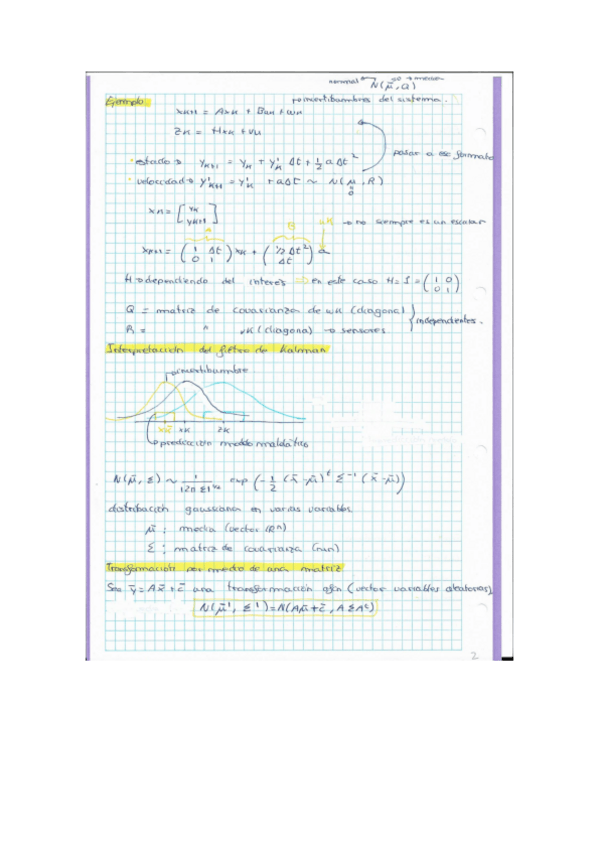 normal N(μ̄, Q) =0 → media
Ejemplo incertidumbres del sistema.
xK+1 = AxK + BuK + wK
zK = HxK + vK
pasar a ese formato
• estado → yK+1 = yK + y'K Δt + 1/2 a Δt²
• velocidad → y'K+1 = y'K + aΔt ~ N(μ, R)
0
A B uK → no siempre es un escalar
xK = [yK yK+1]
xK+1 = (1 Δt 0 1) xK + (1/2 Δt² Δt) a
H → dependiendo del interes ⇒ en este caso H = I = (1 0 0 1)
Q = matriz de covarianza de wK (diagonal)
R = " vK (diagonal) → sensores
independientes.
Interpretación del filtro de Kalman
→ incertidumbre
xK xK zK
→ predicción modelo matemático
N(μ̄, Σ) ~ 1/|2π Σ|^1/2 exp(-1/2 (x̄-μ̄)^t Σ^-1 (x̄-μ̄))
distribución gaussiana en varias variables
μ̄ : media (vector ℝⁿ)
Σ : matriz de covarianza (nxn)
Transformación por medio de una matriz
Sea ȳ = Ax̄ + c̄ una transformación afín (vector variables aleatorias)
N(μ̄', Σ') = N(Aμ̄ + c̄, A Σ A^t)
2